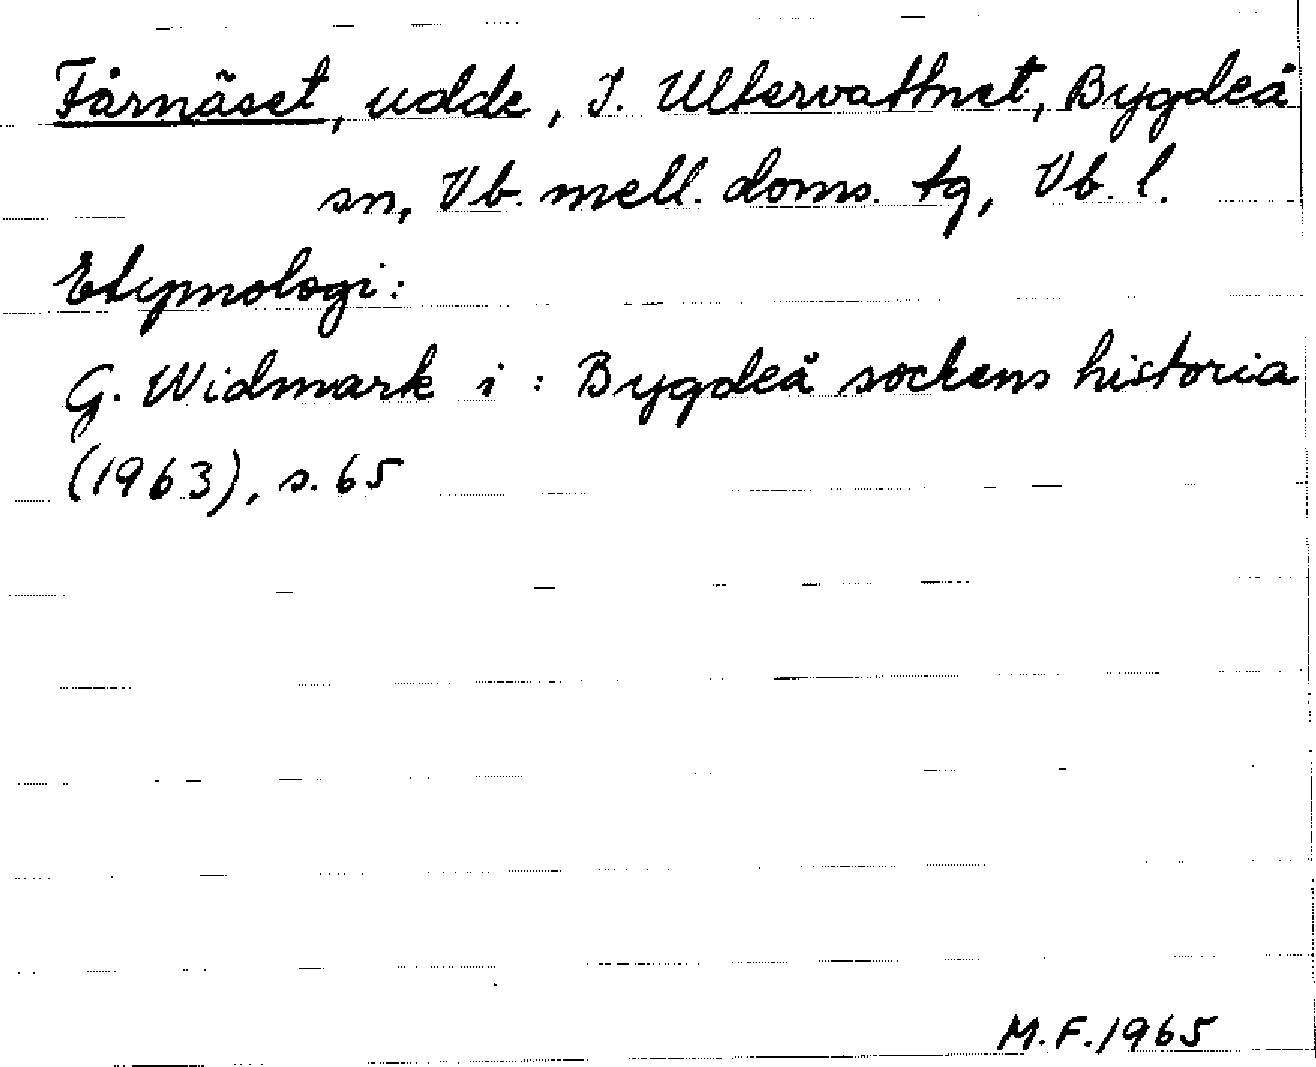 Fårnäset, udde, I. Ultervattnet, Bygdeå
sn, Vb. mell. doms. tg, Vb. l.
Etymologi:
G. Widmark i: Bygdeå sockens historia
(1963), s. 65
M.F. 1965